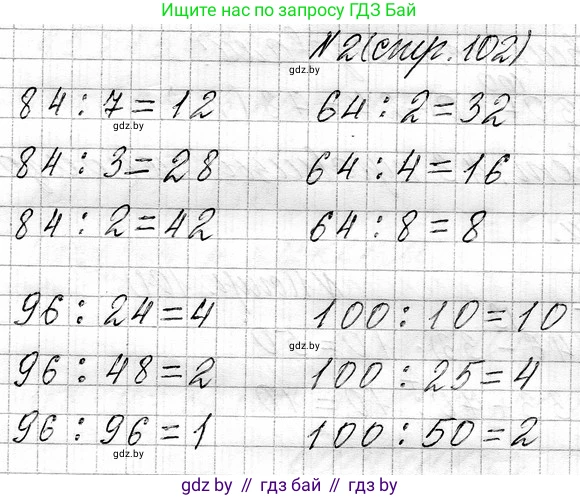 Ищите нас по запросу ГДЗ Бай
№2(стр. 102)
gdz.by
84 : 7 = 12 64 : 2 = 32
gdz.by
84 : 3 = 28 64 : 4 = 16
84 : 2 = 42 64 : 8 = 8
96 : 24 = 4 100 : 10 = 10
gdz.by
96 : 48 = 2 100 : 25 = 4
96 : 96 = 1 100 : 50 = 2
gdz.by
gdz.by // гдз бай // gdz by